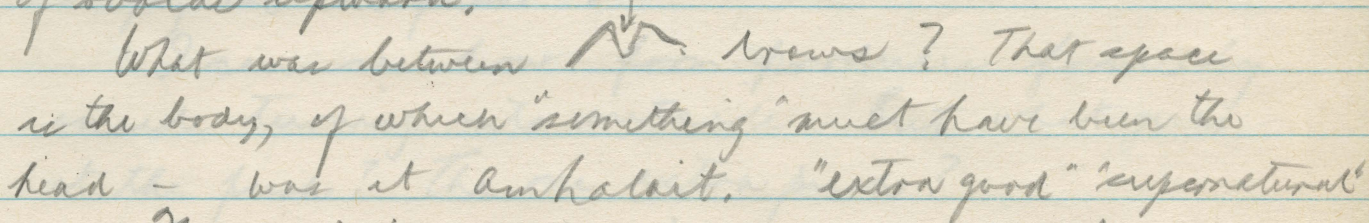 What was between brows? That space
is the body, of which "something" must have been the
head - was it Amhalait. "extra good" "supernatural"